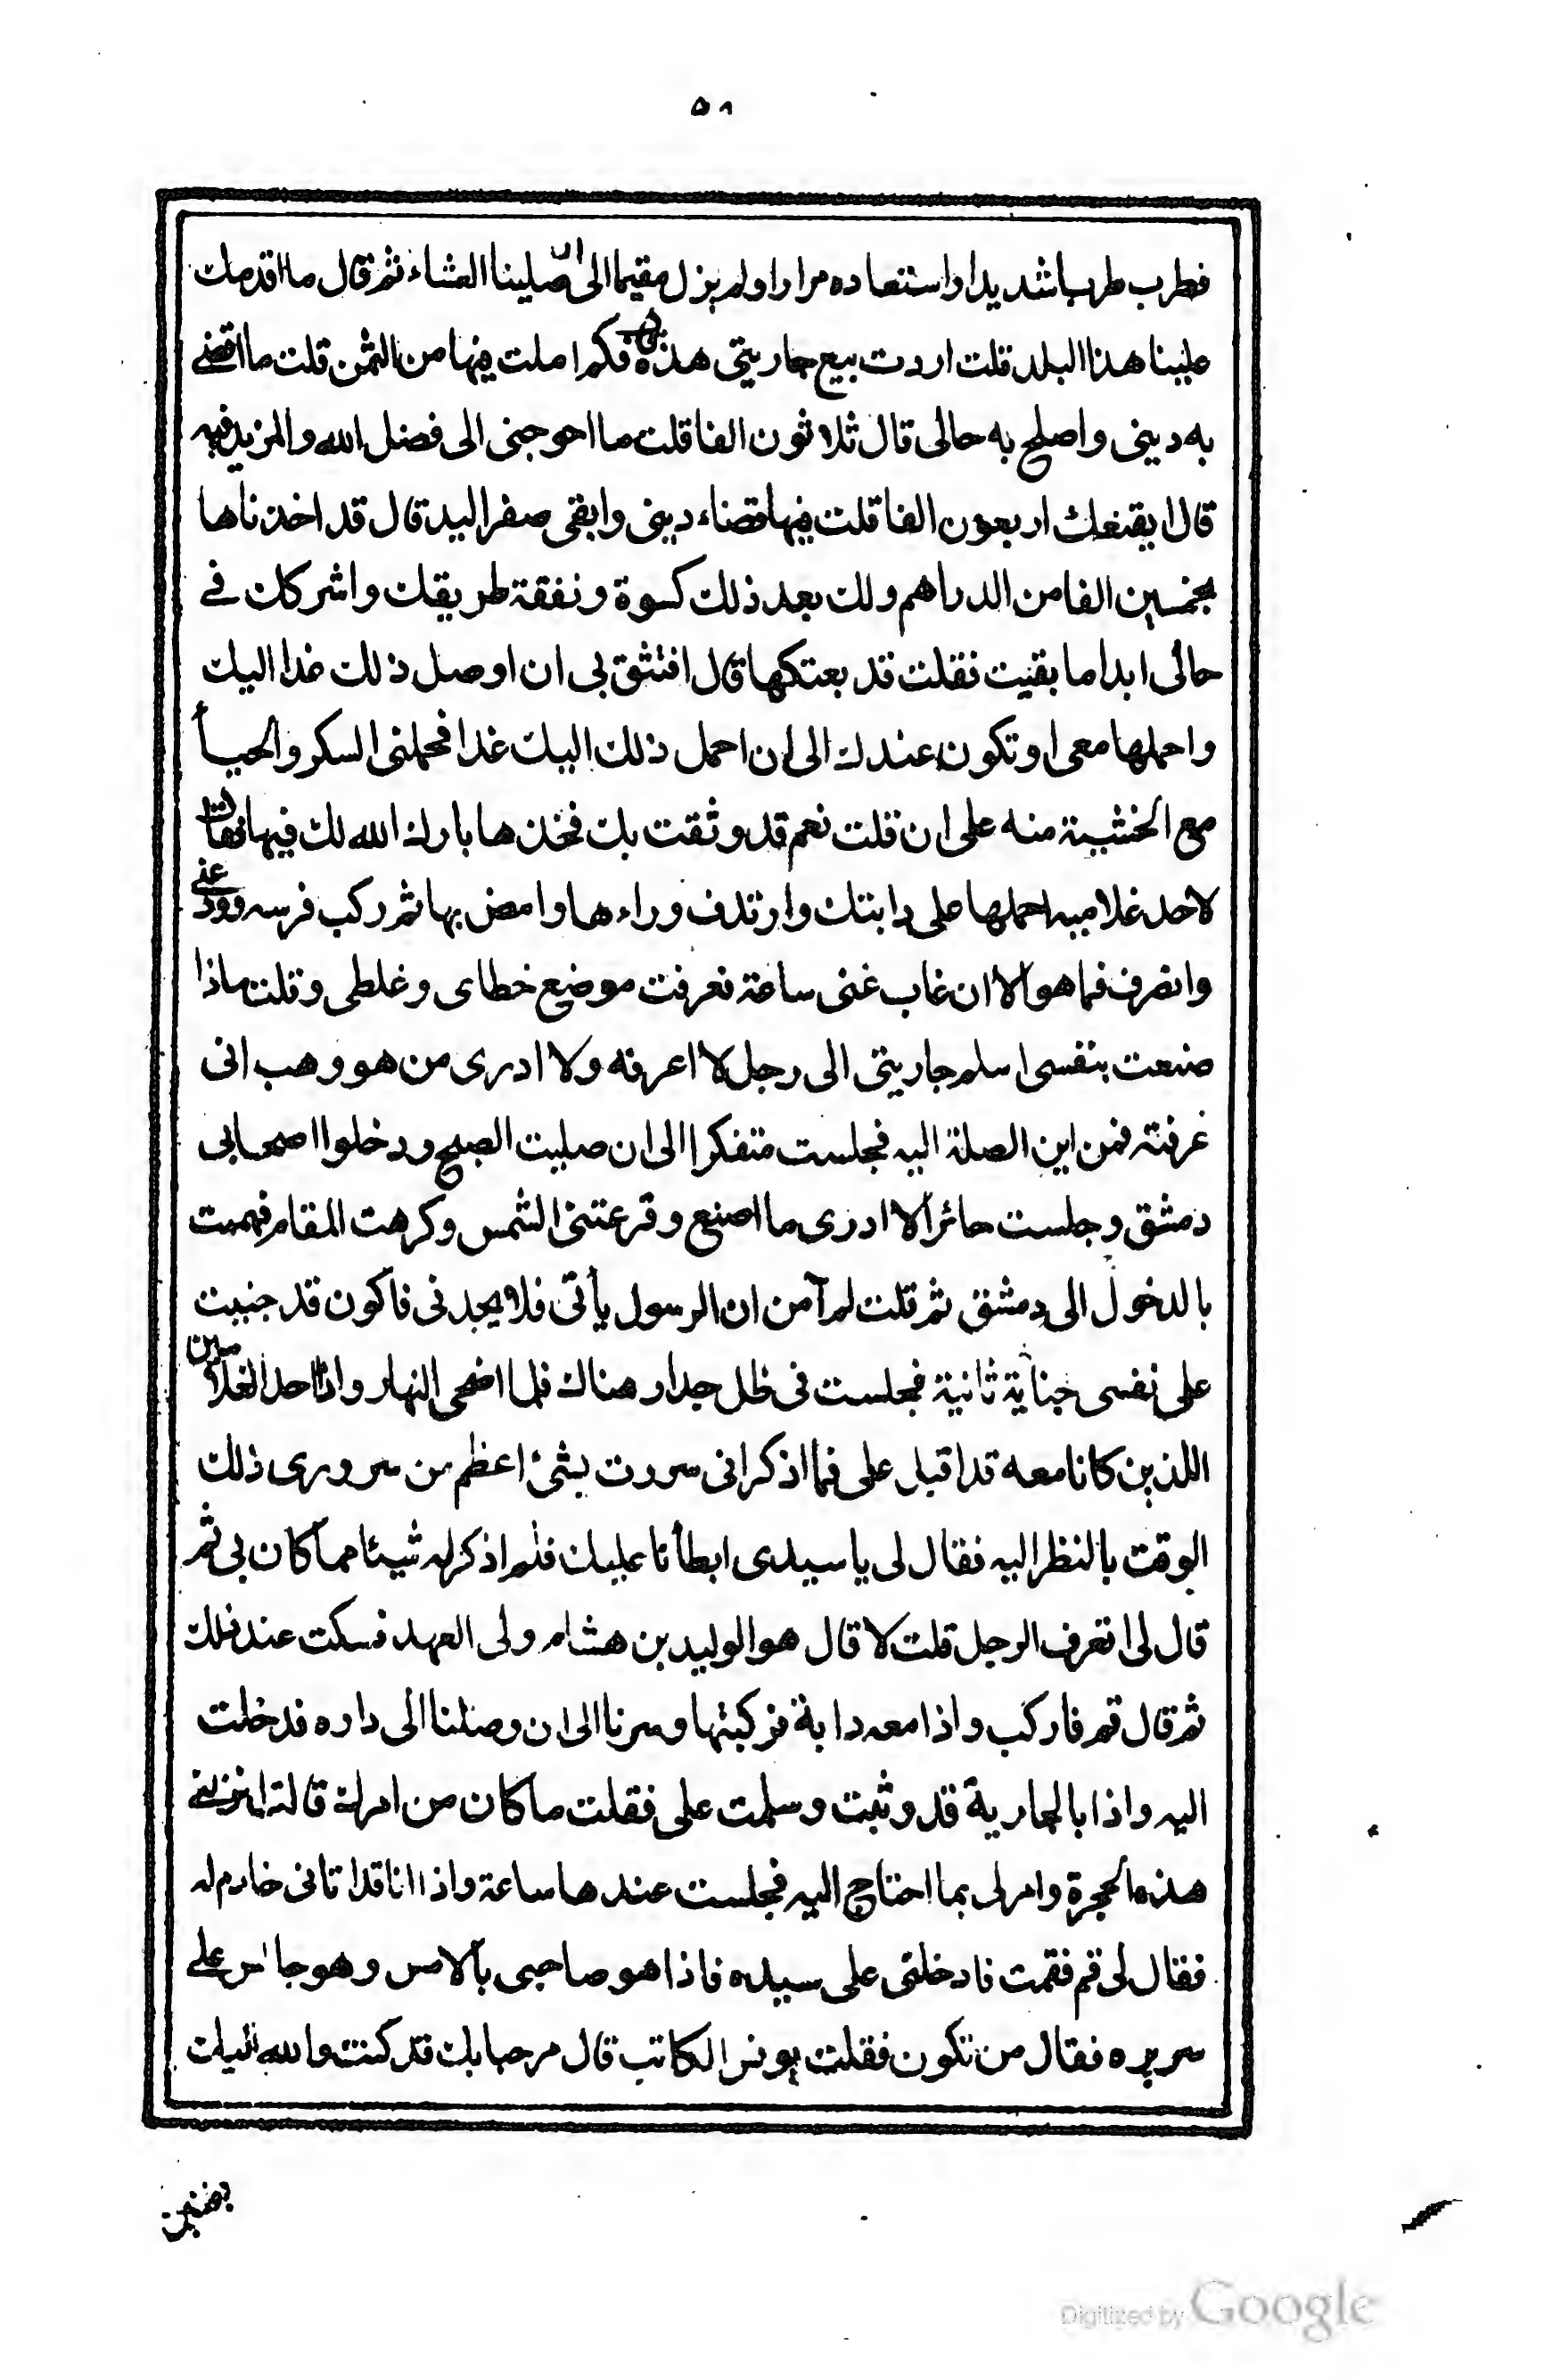 ٥٨
فطرب طربا شديدا واستعاده مرارا ولم يزل مقيما الى ان صلينا العشاء ثم قال ما اقدمك
علينا هذا البلد قلت اردت بيع جاريتى هذه قال فكم املت فيها من الثمن قلت ما اقضے
به دينى واصلح به حالى قال ثلاثون الفا قلت ما احوجنى الى فضل الله والمزيد فيه
قال ايقنعك اربعون الفا قلت فيها قضاء دينى وابقى صفر اليد قال قد اخذناها
بخمسين الفا من الدراهم ولك بعد ذلك كسوة ونفقة طريقك واشركك فے
حالى ابدا ما بقيت فقلت قد بعتكها قال افتثق بى ان اوصل ذلك غدا اليك
واحملها معى او تكون عندك الى ان احمل ذلك اليك غدا فحملنى السكر والحيأ
مع الخشية منه على ان قلت نعم قد وثقت بك فخذها بارك الله لك فيها فقال
لاحد غلاميه احملها على دابتك وارتدف وراءها وامض بها ثم ركب فرسه وودعنے
وانصرف فما هو الا ان غاب عنى ساعة فعرفت موضع خطاى وغلطى وقلت ماذا
صنعت بنفسى اسلم جاريتى الى رجل لا اعرفه ولا ادرى من هو وهب انى
عرفته فمن اين الصلة اليه فجلست متفكرا الى ان صليت الصبح ودخلوا اصحابى
دمشق وجلست حائرا لا ادرى ما اصنع وقرعتنى الشمس وكرهت المقام فهممت
بالدخول الى دمشق ثم قلت لم آمن ان الرسول يأتى فلا يجدنى فاكون قد جنيت
على نفسى جناية ثانية فجلست فى ظل جدار هناك فلما اضحى النهار واذا احد الغلامين
اللذين كانا معه قد اقبل على فما اذكر انى سررت بشئ اعظم من سرورى ذلك
الوقت بالنظر اليه فقال لى يا سيدى ابطأنا عليك فلم اذكر له شيئا مما كان بى ثم
قال لى اتعرف الرجل قلت لا قال هو الوليد بن هشام ولى العهد فسكت عند ذلك
ثم قال قم فاركب واذا معه دابة فركبتها وسرنا الى ان وصلنا الى داره فدخلت
اليه واذا بالجارية قد وثبت وسلمت على فقلت ما كان من امرك قالت انزلنے
هذه الحجرة وامر لى بما احتاج اليه فجلست عندها ساعة واذا انا قد اتانى خادم له
فقال لى قم فقمت فادخلنى على سيده فاذا هو صاحبى بالامس وهو جالس علے
سريره فقال من تكون فقلت يونس الكاتب قال مرحبا بك قد كنت والله اليك
Digitized by Google